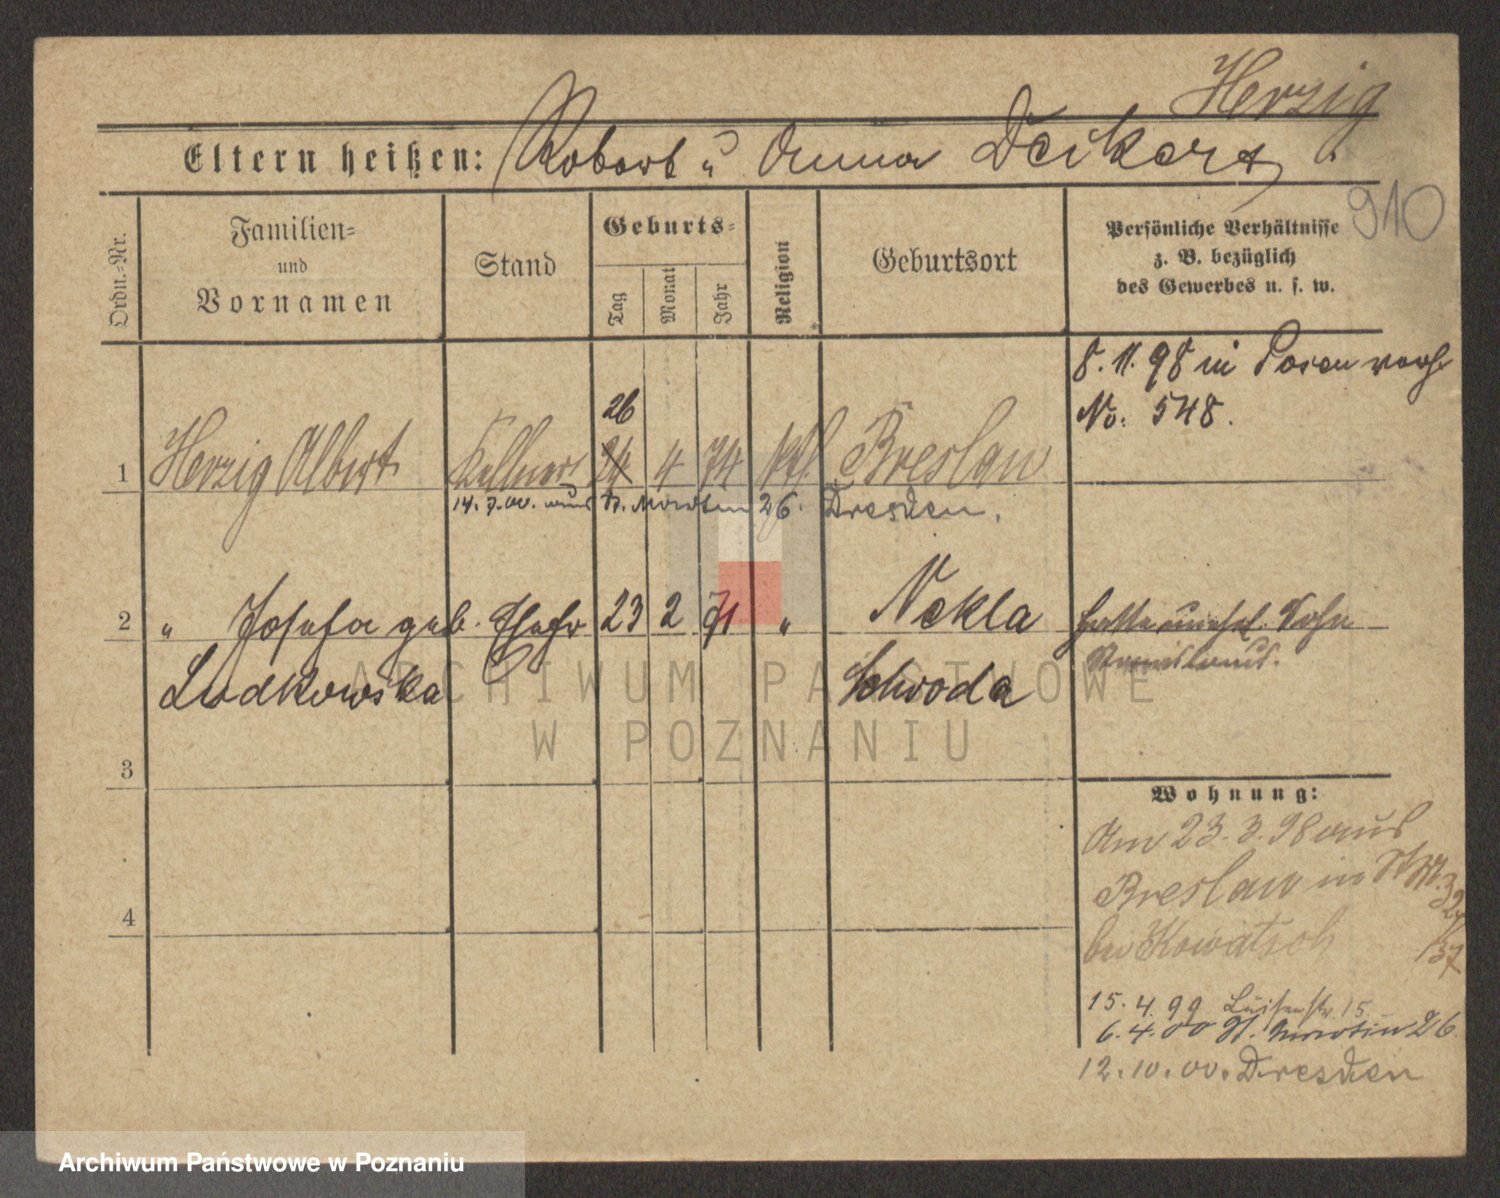 Herzig
Eltern heißen: Robert u Anna Deikert.
910
Ordn.-Nr.
Familien-
und
Vornamen
Stand
Geburts-
Tag
Monat
Jahr
Religion
Geburtsort
Persönliche Verhältnisse
z. B. bezüglich
des Gewerbes u. s. w.
8. 11. 98 in Posen verh.
No. 548.
26
1 Herzig Albert Kellner 24 4 74 ktl. Breslau
14. 7. 00. aus St. Martin 26. Dresden.
2 " Josefa geb. Ehefr 23 2 71 " Nekla
Ludkowska Schroda
hatte unehel. Sohn
3
4
Wohnung:
Am 23. 3. 98 aus
Breslau in
bei Kowatsch
15. 4. 99 Luisenstr. 15
6. 4. 00 St. Martin 26
12. 10. 00. Dresden
ARCHIWUM PAŃSTWOWE
W POZNANIU
Archiwum Państwowe w Poznaniu